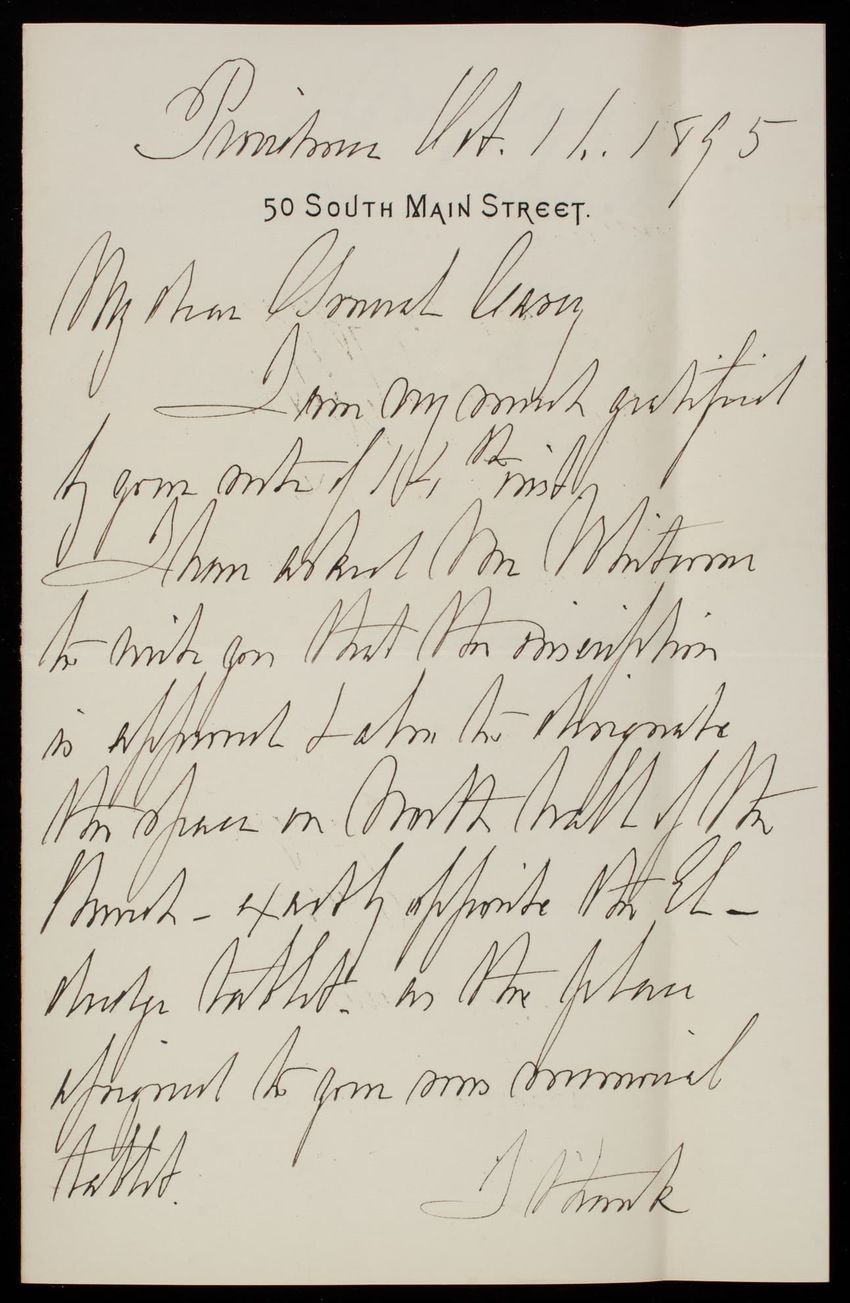 Providence Oct. 16. 1895
50 SOUTH MAIN STREET.
My dear General Casey
I am very much gratified
by your note of 14th inst.
I have asked Mr
to write you that the inscription
is approved & also to designate
the space on North wall of the
Church - exactly opposite the El-
dredge tablet. as the place
assigned to your sons memorial
tablet.
I thank